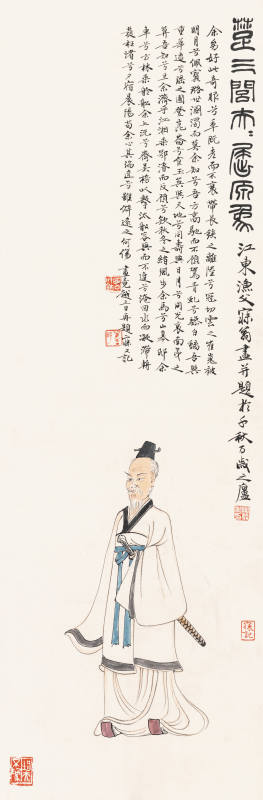 楚三閭大夫屈原象
江東漁父寐翁畫并題於千秋万歲之廬
余幼好此奇服兮年既老而不衰帶長鋏之陸離兮冠切雲之崔嵬被
明月兮佩寶璐世溷濁而莫余知兮吾方高馳而不顧駕青虬兮驂白螭吾與
重華遊兮瑤之圃登崑崙兮食玉英與天地兮同壽與日月兮同光哀南夷之
莫吾知兮旦余濟乎江湘乘鄂渚而反顧兮欸秋冬之緒風步余馬兮山皋邸余
車兮方林乘舲船余上沅兮齊吳榜以擊汰船容與而不進兮淹回水而凝滯朝
發枉渚兮夕宿辰陽苟余心其端直兮雖僻遠之何傷 畫竟越二日再題 記